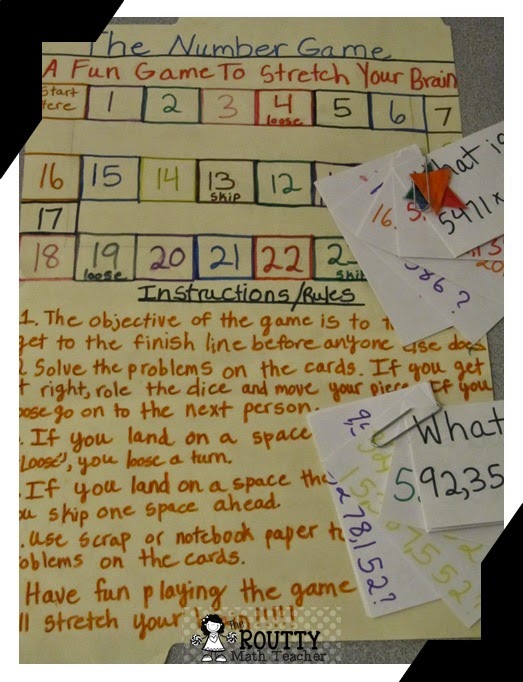 The Number Game
A Fun Game To Stretch Your Brain
Start Here 1 2 3 4 loose 5 6 7
16 15 14 13 skip 12
17
18 19 loose 20 21 22
Instructions/Rules
1. The objective of the game is to
get to the finish line before anyone else does
Solve the problems on the cards. If you get
right, role the dice and move your piece. If you
go on to the next person.
If you land on a space
"Loose", you loose a turn.
If you land on a space
skip one space ahead.
use scrap or notebook paper to
on the cards.
Have fun playing the game
stretch your
What is
5471 x
16. 5.
What
5. 92,35
78,152?
The
ROUTTY
Math Teacher